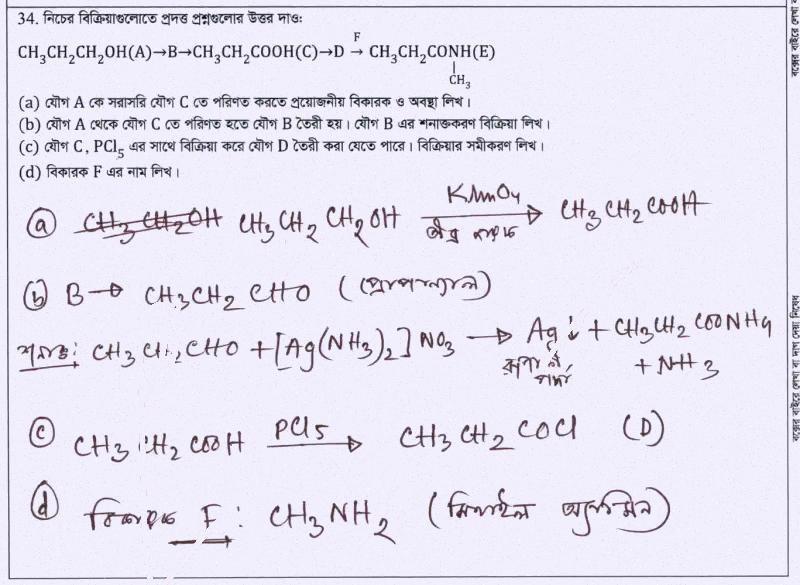 34. নিচের বিক্রিয়াগুলোতে প্রদত্ত প্রশ্নগুলোর উত্তর দাও:
F
CH₃CH₂CH₂OH(A)→B→CH₃CH₂COOH(C)→D → CH₃CH₂CONH(E)
|
CH₃
(a) যৌগ A কে সরাসরি যৌগ C তে পরিণত করতে প্রয়োজনীয় বিকারক ও অবস্থা লিখ।
(b) যৌগ A থেকে যৌগ C তে পরিণত হতে যৌগ B তৈরী হয়। যৌগ B এর শনাক্তকরণ বিক্রিয়া লিখ।
(c) যৌগ C, PCl₅ এর সাথে বিক্রিয়া করে যৌগ D তৈরী করা যেতে পারে। বিক্রিয়ার সমীকরণ লিখ।
(d) বিকারক F এর নাম লিখ।
KMnO₄
(a) CH₃CH₂OH CH₃CH₂CH₂OH → CH₃CH₂COOH
(b) B → CH₃CH₂CHO (প্রোপান্যাল)
CH₃CH₂CHO + [Ag(NH₃)₂]NO₃ → Ag↓ + CH₃CH₂COONH₄
+ NH₃
PCl₅
(c) CH₃CH₂COOH → CH₃CH₂COCl (D)
(d) বিকারক F: CH₃NH₂ (মিথাইল অ্যামিন)
বক্সের বাইরে লেখা বা দাগ দেয়া নিষেধ
বক্সের বাইরে লেখা